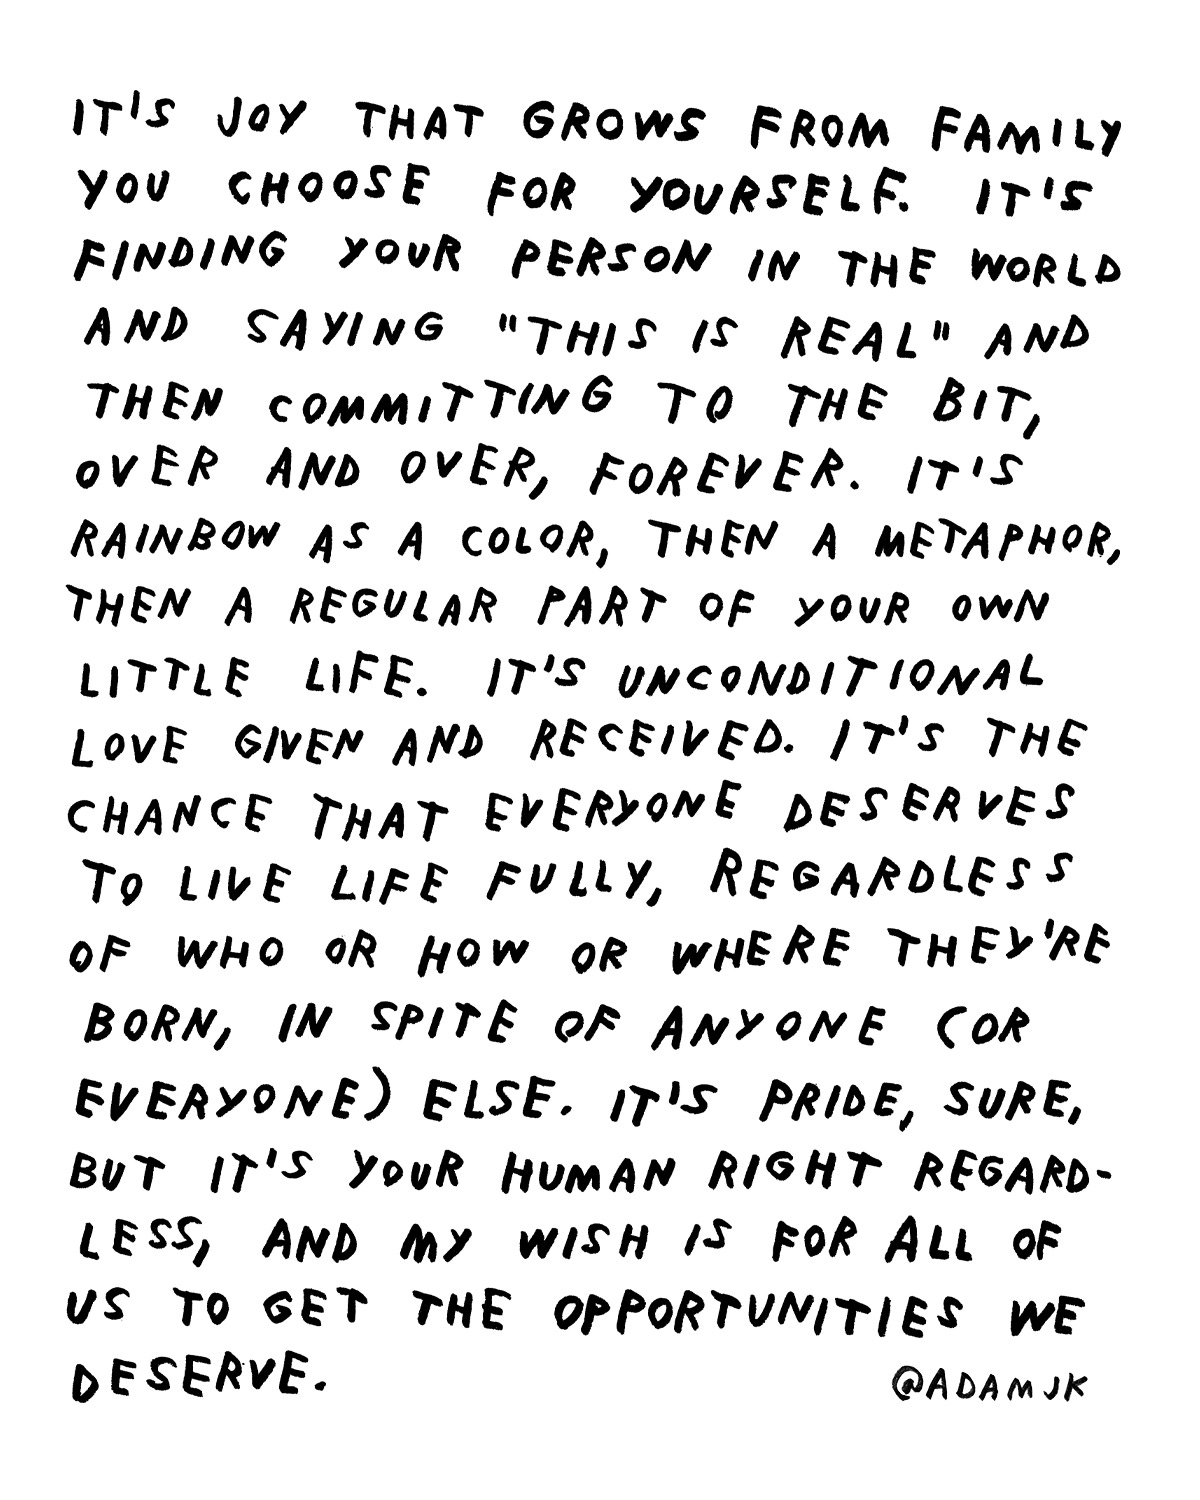 IT'S JOY THAT GROWS FROM FAMILY
YOU CHOOSE FOR YOURSELF. IT'S
FINDING YOUR PERSON IN THE WORLD
AND SAYING "THIS IS REAL" AND
THEN COMMITTING TO THE BIT,
OVER AND OVER, FOREVER. IT'S
RAINBOW AS A COLOR, THEN A METAPHOR,
THEN A REGULAR PART OF YOUR OWN
LITTLE LIFE. IT'S UNCONDITIONAL
LOVE GIVEN AND RECEIVED. IT'S THE
CHANCE THAT EVERYONE DESERVES
TO LIVE LIFE FULLY, REGARDLESS
OF WHO OR HOW OR WHERE THEY'RE
BORN, IN SPITE OF ANYONE (OR
EVERYONE) ELSE. IT'S PRIDE, SURE,
BUT IT'S YOUR HUMAN RIGHT REGARD-
LESS, AND MY WISH IS FOR ALL OF
US TO GET THE OPPORTUNITIES WE
DESERVE. @ADAMJK